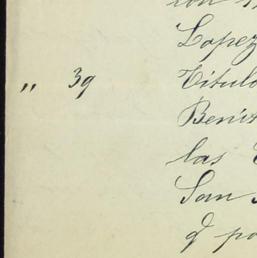 Lopez
„ 39 Titulo
Benit
las
San
q po